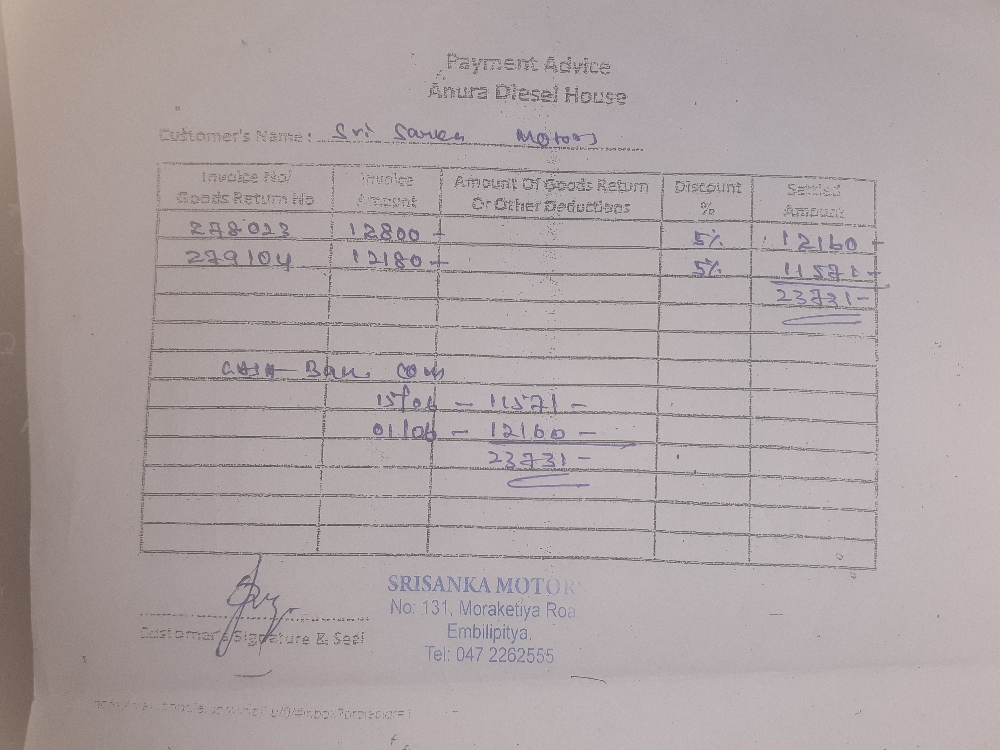 Payment Advice
Anura Diesel House
Customer's Name: Sri Motors
Invoice No/ Goods Return No Invoice Amount Amount Of Goods Return Or Other Deductions Discount % Settled Amount
278023 12800 - 5% 12160 -
279104 12180 - 5% 11571 -
23731 -
15/06 - 11571 -
01/06 - 12160 -
23731 -
SRISANKA MOTORS
No: 131, Moraketiya Roa
Embilipitya.
Tel: 047 2262555
Customer's Signature & Seal